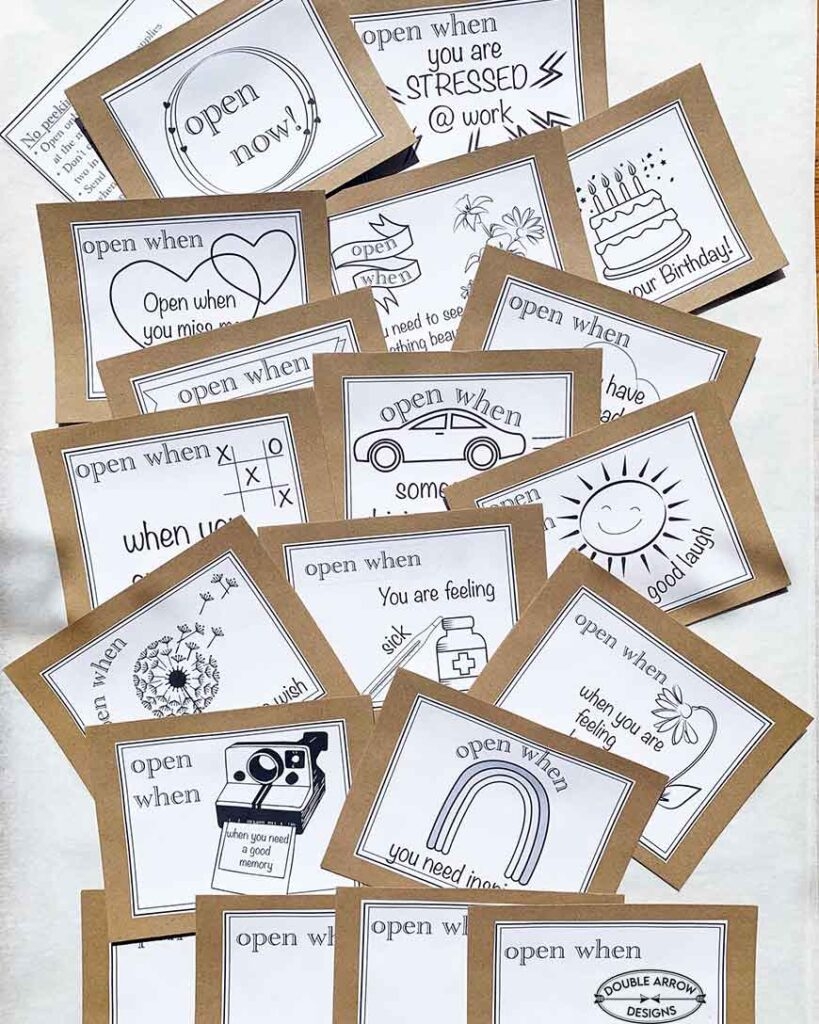 No peeking
• Open on
at the m
• Don't
two in
• Send
open
now!
open when
you are
STRESSED
@ work
your Birthday!
open when
Open when
you miss me
open
when
need to see
open when
have
open when
open when
some
open when
X O
X
X
when you
open
good laugh
open when
You are feeling
sick
when
wish
open when
when you are
feeling
open
when
when you need
a good
memory
open when
you need
open
open
open when
DOUBLE ARROW
DESIGNS